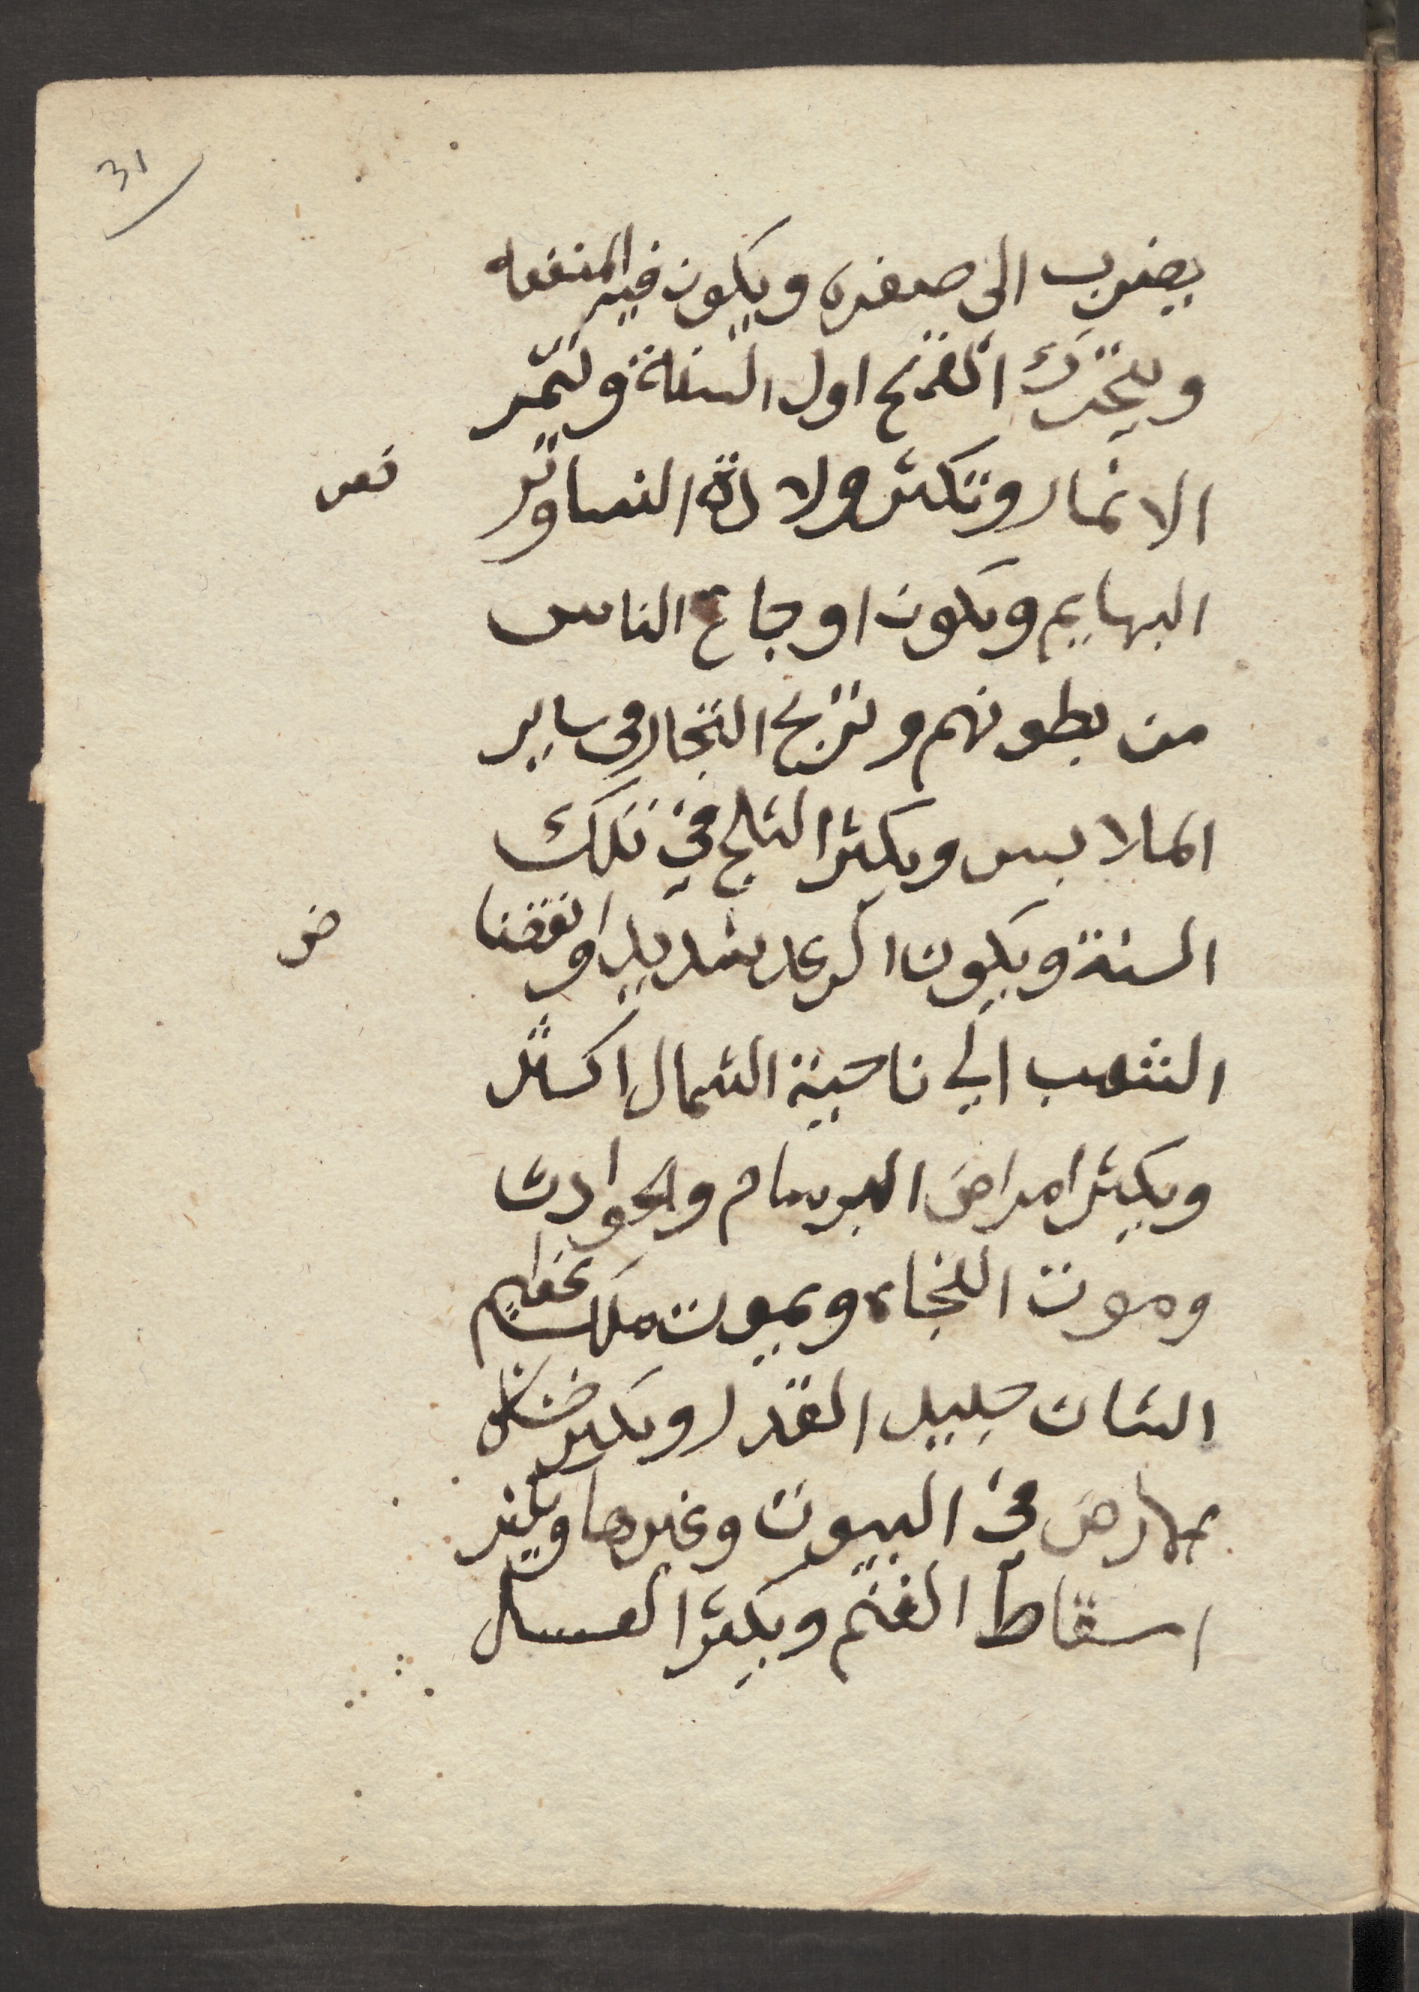 31
يضرب الى صفره ويكون فيه المنفعه
ويتحرك القمح اول السنة وتثمر
الاثمار وتكثر ولادة النسا وتر
البهايم ويكون اوجاع الناس
من بطونهم وتربح التجار فى ساير
الملابس ويكثر الثلج في تلك
السنة ويكون الرعد شديدا و
ض
الشهب الي ناحية الشمال اكثر
ويكثر امراض البرسام والحوادث
وموت الفجاه ويموت ملك عظيم
الشان جليل القدر ويكثر
في البيوت وغيرها ويكثر
اسقاط الغنم ويكثر العسل